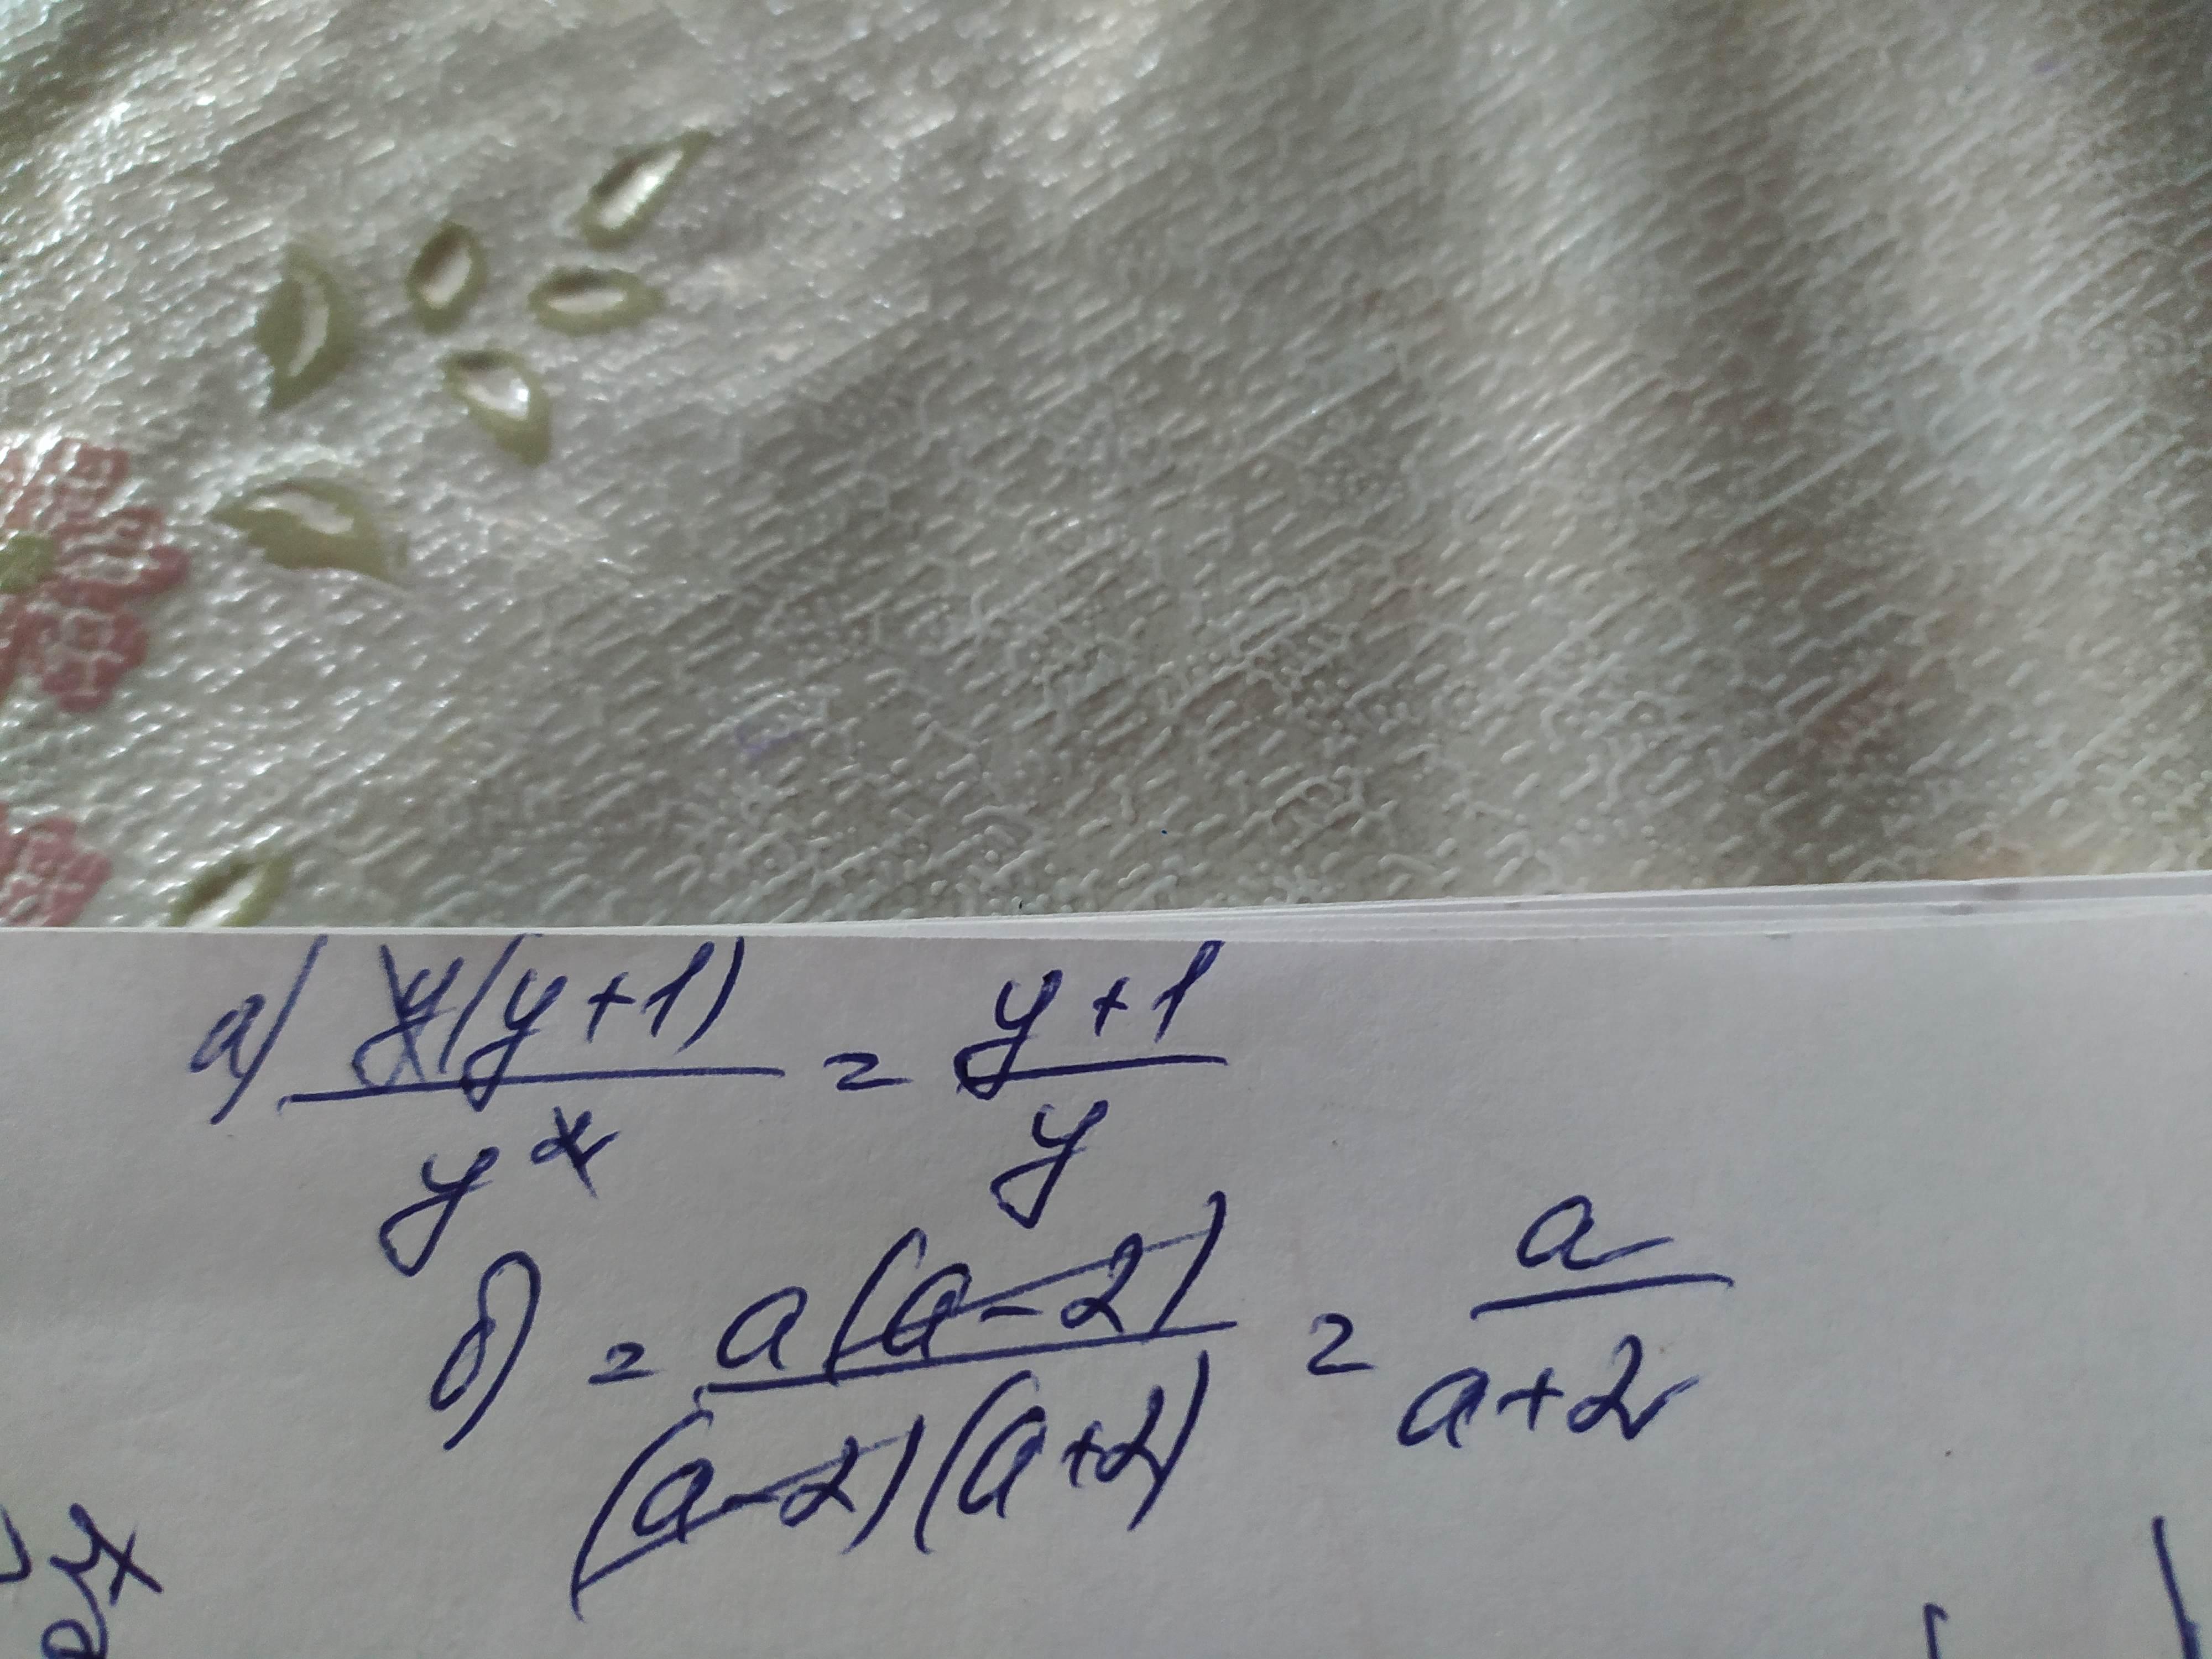 а) y(y+1)/y² = (y+1)/y
б) = a(a-2)/((a-2)(a+2)) = a/(a+2)